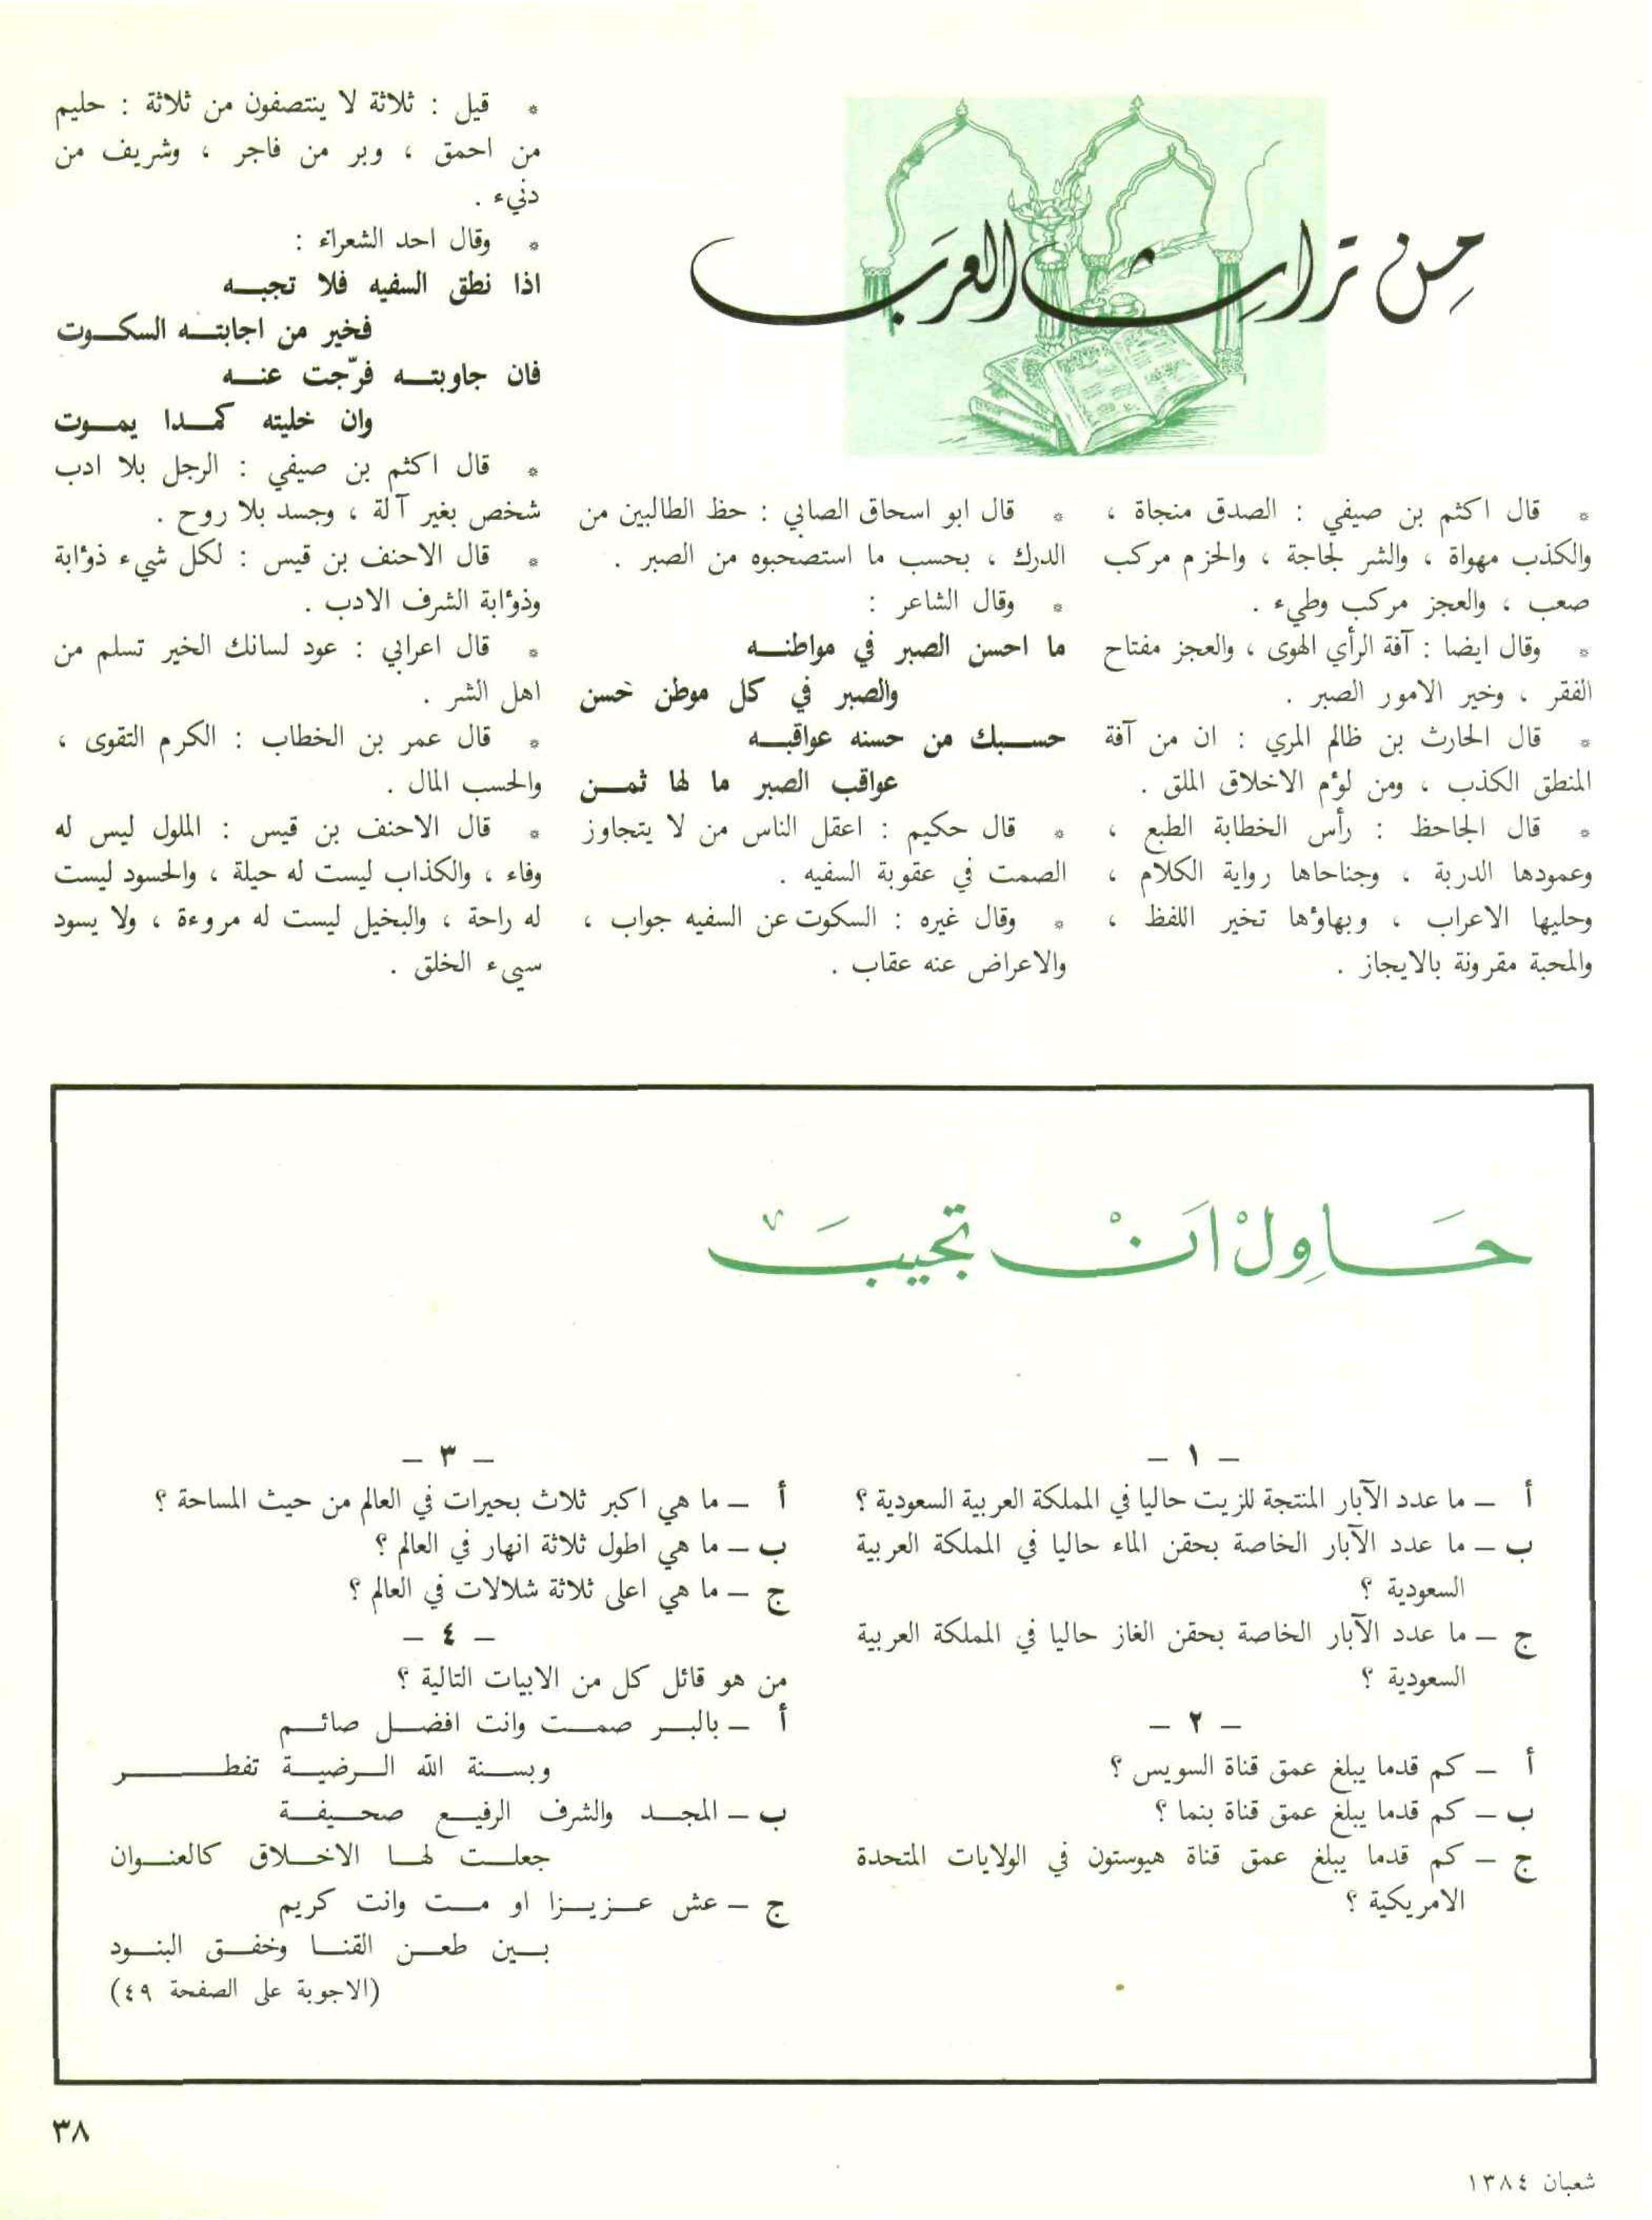 من تراث العرب
* قال اكثم بن صيفي : الصدق منجاة ،
والكذب مهواة ، والشر لجاجة ، والحزم مركب
صعب ، والعجز مركب وطيء .
* وقال ايضا : آفة الرأي الهوى ، والعجز مفتاح
الفقر ، وخير الامور الصبر .
* قال الحارث بن ظالم المري : ان من آفة
المنطق الكذب ، ومن لؤم الاخلاق الملق .
* قال الجاحظ : رأس الخطابة الطبع ،
وعمودها الدربة ، وجناحاها رواية الكلام ،
وحليها الاعراب ، وبهاؤها تخير اللفظ ،
والمحبة مقرونة بالايجاز .
* قال ابو اسحاق الصابي : حظ الطالبين من
الدرك ، بحسب ما استصحبوه من الصبر .
* وقال الشاعر :
ما احسن الصبر في مواطنه
والصبر في كل موطن حسن
حسبك من حسنه عواقبه
عواقب الصبر ما لها ثمن
* قال حكيم : اعقل الناس من لا يتجاوز
الصمت في عقوبة السفيه .
* وقال غيره : السكوت عن السفيه جواب ،
والاعراض عنه عقاب .
* قيل : ثلاثة لا ينتصفون من ثلاثة : حليم
من احمق ، وبر من فاجر ، وشريف من
دنيء .
* وقال احد الشعراء :
اذا نطق السفيه فلا تجبه
فخير من اجابته السكوت
فان جاوبته فرّجت عنه
وان خليته كمدا يموت
* قال اكثم بن صيفي : الرجل بلا ادب
شخص بغير آلة ، وجسد بلا روح .
* قال الاحنف بن قيس : لكل شيء ذؤابة
وذؤابة الشرف الادب .
* قال اعرابي : عود لسانك الخير تسلم من
اهل الشر .
* قال عمر بن الخطاب : الكرم التقوى ،
والحسب المال .
* قال الاحنف بن قيس : الملول ليس له
وفاء ، والكذاب ليست له حيلة ، والحسود ليست
له راحة ، والبخيل ليست له مروءة ، ولا يسود
سيىء الخلق .
حَاوِلْ اَنْ تجيبَ
– ١ –
أ – ما عدد الآبار المنتجة للزيت حاليا في المملكة العربية السعودية ؟
ب – ما عدد الآبار الخاصة بحقن الماء حاليا في المملكة العربية
السعودية ؟
ج – ما عدد الآبار الخاصة بحقن الغاز حاليا في المملكة العربية
السعودية ؟
– ٢ –
أ – كم قدما يبلغ عمق قناة السويس ؟
ب – كم قدما يبلغ عمق قناة بنما ؟
ج – كم قدما يبلغ عمق قناة هيوستون في الولايات المتحدة
الامريكية ؟
– ٣ –
أ – ما هي اكبر ثلاث بحيرات في العالم من حيث المساحة ؟
ب – ما هي اطول ثلاثة انهار في العالم ؟
ج – ما هي اعلى ثلاثة شلالات في العالم ؟
– ٤ –
من هو قائل كل من الابيات التالية ؟
أ – بالبر صمت وانت افضل صائم
وبسنة الله الرضية تفطر
ب – المجد والشرف الرفيع صحيفة
جعلت لها الاخلاق كالعنوان
ج – عش عزيزا او مت وانت كريم
بين طعن القنا وخفق البنود
(الاجوبة على الصفحة ٤٩)
٣٨
شعبان ١٣٨٤